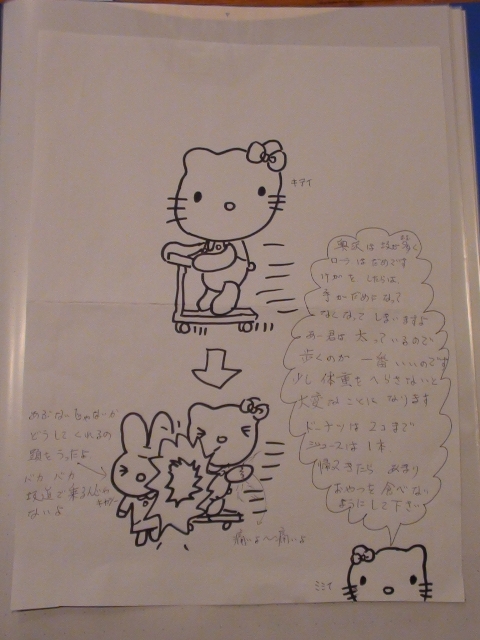 キティ
奥沢は坂が多く
ローラはだめです
けがをしたらは
手がだめになって
なくなってしまいますよ
あー君は太っているので
歩くのが一番いいのです
少し体重をへらさないと
大変なことになります
ドーナツは2コまで
ジュースは1本
帰ってきたらあまり
おやつを食べない
ようにして下さい
ミミイ
あぶなーちゃなーか
どうしてくれるの
頭をうったよ
バカバカ
坂道で乗るんじゃ
ないよ
キャシー
痛いよ〜痛いよ